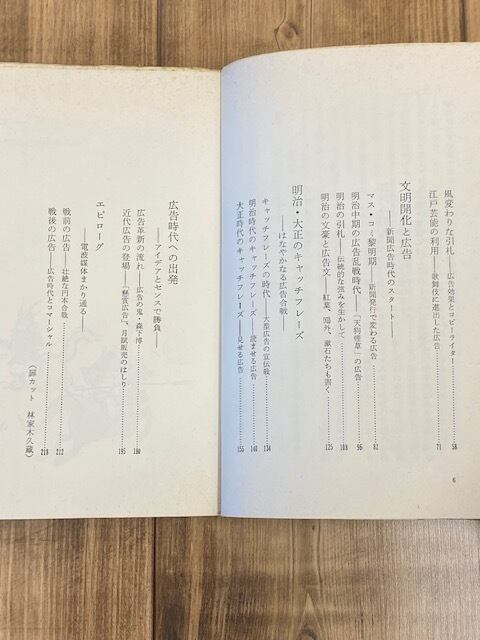 風変わりな引札——広告効果とコピーライター……58
江戸芸能の利用——歌舞伎に進出した広告……71
文明開化と広告
——新聞広告時代のスタート——
マス・コミ黎明期——新聞発行で変わる広告……82
明治中期の広告乱戦時代——「天狗煙草」の広告……96
明治の引札——伝統的な強みを生かして……108
明治の文豪と広告文——紅葉、鷗外、漱石たちも書く……125
明治・大正のキャッチフレーズ
——はなやかなる広告合戦——
キャッチフレーズの時代——大型広告の宣伝戦……134
明治時代のキャッチフレーズ——読ませる広告……140
大正時代のキャッチフレーズ——見せる広告……156
6
広告時代への出発
——アイデアとセンスで勝負——
広告革新の流れ——広告の鬼・森下博……180
近代広告の登場——「懸賞広告」、月賦販売のはしり……195
エピローグ
——電波媒体まかり通る——
戦前の広告——壮絶な円本合戦……212
戦後の広告——広告時代とコマーシャル……218
（扉カット 林家木久蔵）